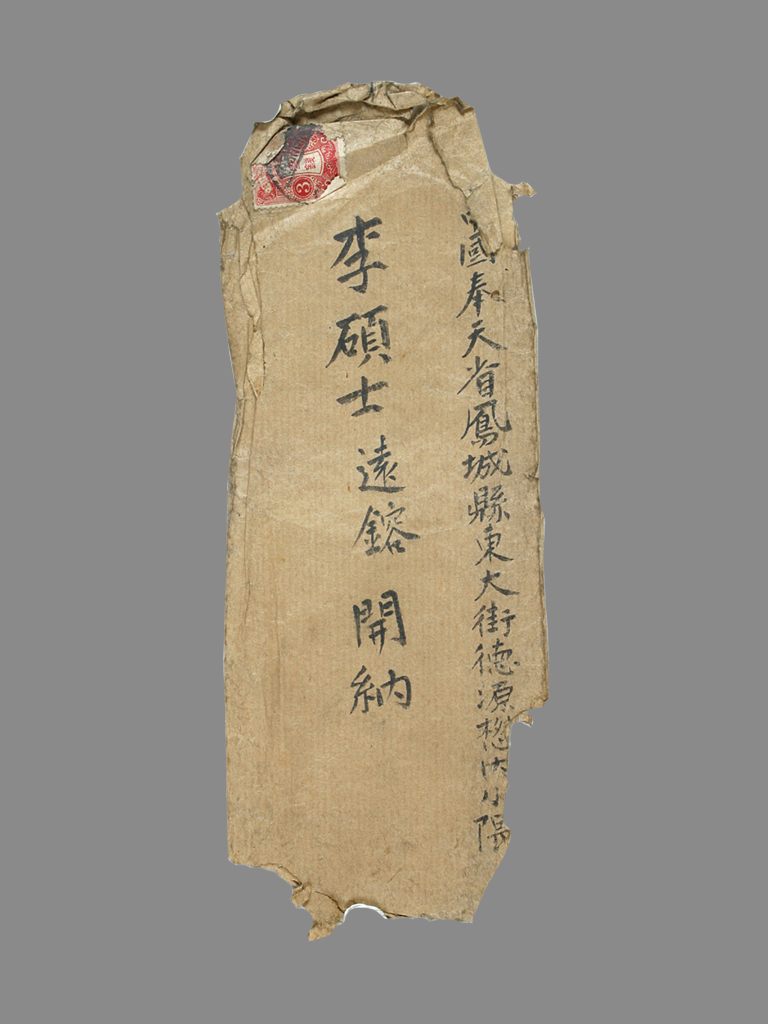 中國奉天省鳳城縣東大街德源㮣內小隔
李碩士 遠鎔 開納